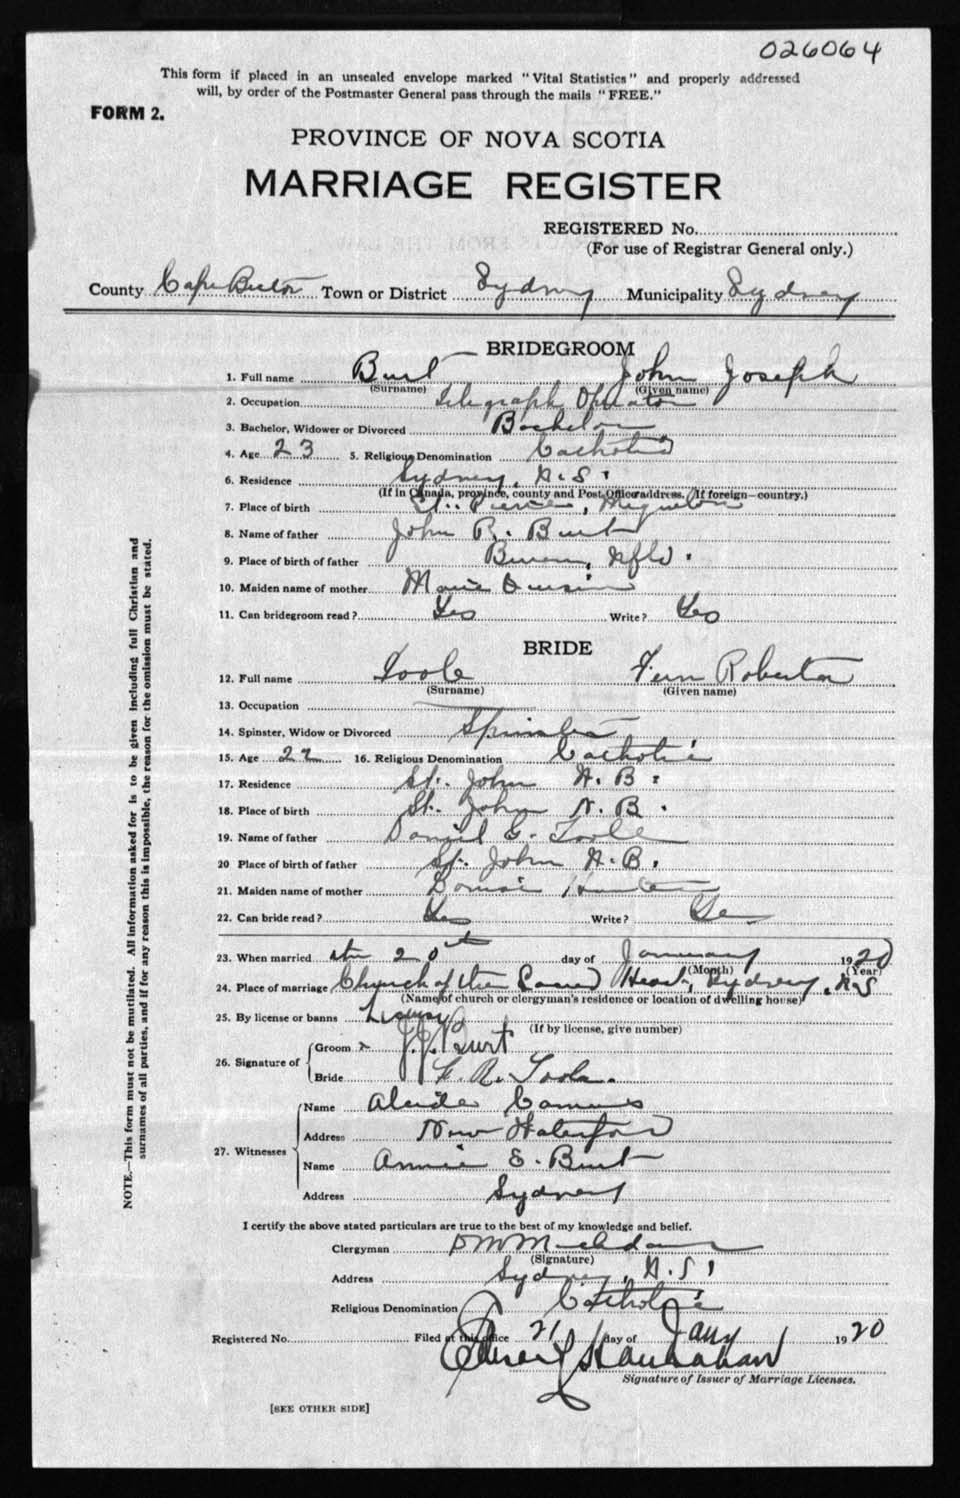 026064
This form if placed in an unsealed envelope marked "Vital Statistics" and properly addressed
will, by order of the Postmaster General pass through the mails "FREE."
FORM 2.
PROVINCE OF NOVA SCOTIA
MARRIAGE REGISTER
REGISTERED No.
(For use of Registrar General only.)
County Cape Breton Town or District Sydney Municipality Sydney
BRIDEGROOM
1. Full name Burt John Joseph
(Surname) (Given name)
2. Occupation Telegraph Operator
3. Bachelor, Widower or Divorced Bachelor
4. Age 23 5. Religious Denomination Catholic
6. Residence Sydney, N.S.
(If in Canada, province, county and Post Office address. If foreign—country.)
7. Place of birth St. Pierre, Miquelon
8. Name of father John R. Burt
9. Place of birth of father Burin, Nfld.
10. Maiden name of mother Marie
11. Can bridegroom read? Yes Write? Yes
BRIDE
12. Full name Toole Fern Roberta
(Surname) (Given name)
13. Occupation
14. Spinster, Widow or Divorced Spinster
15. Age 22 16. Religious Denomination Catholic
17. Residence St. John N.B.
18. Place of birth St. John N.B.
19. Name of father Daniel E. Toole
20 Place of birth of father St. John N.B.
21. Maiden name of mother
22. Can bride read? Yes Write? Yes
23. When married the 20th day of January 1920
(Month) (Year)
24. Place of marriage Church of the Sacred Heart, Sydney, N.S
(Name of church or clergyman's residence or location of dwelling house)
25. By license or banns License
(If by license, give number)
26. Signature of Groom x J.J. Burt
Bride F. R. Toole.
27. Witnesses
Name
Address New Waterford
Name Annie E. Burt
Address Sydney
I certify the above stated particulars are true to the best of my knowledge and belief.
Clergyman
(Signature)
Address Sydney, N.S.
Religious Denomination Catholic
Registered No. Filed at this office 21 day of Jany 1920
Signature of Issuer of Marriage Licenses.
[SEE OTHER SIDE]
NOTE.—This form must not be mutilated. All information asked for is to be given including full Christian and
surnames of all parties, and if for any reason this is impossible, the reason for the omission must be stated.